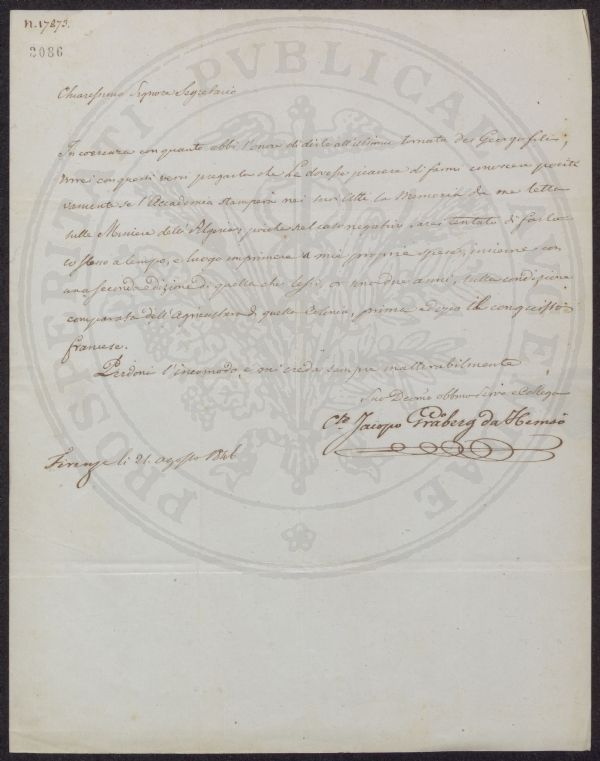 n. 17873.
2086
Chiarissimo Signore Segretario
In coerenza con quanto ebbi l'onore di dirle all'ultima tornata de' Georgofili,
vorrei con questi versi pregarla che Le dovesse piacere di farmi conoscere positi
vamente se l'Accademia stamperà nei suoi Atti la Memoria da me letta
sulle Miniere dell'Algeria, poiché nel caso negativo, sarei tentato di farlo
stesso a tempo, e luogo imprimere a mie proprie spese, insieme con
una seconda edizione di quella che lessi, or sono due anni, sulla condizione
comparata dell'Agricoltura di quella Colonia, prima e dopo il conquisto
francese.
Perdoni l'incomodo, e mi creda sempre inalterabilmente
Suo Devmo obbmo Servo e Collega
Cte Jacopo Gråberg da Hemsö
Firenze li 21. agosto 1846
PROSPERITATI PUBLICAE AUGENDAE